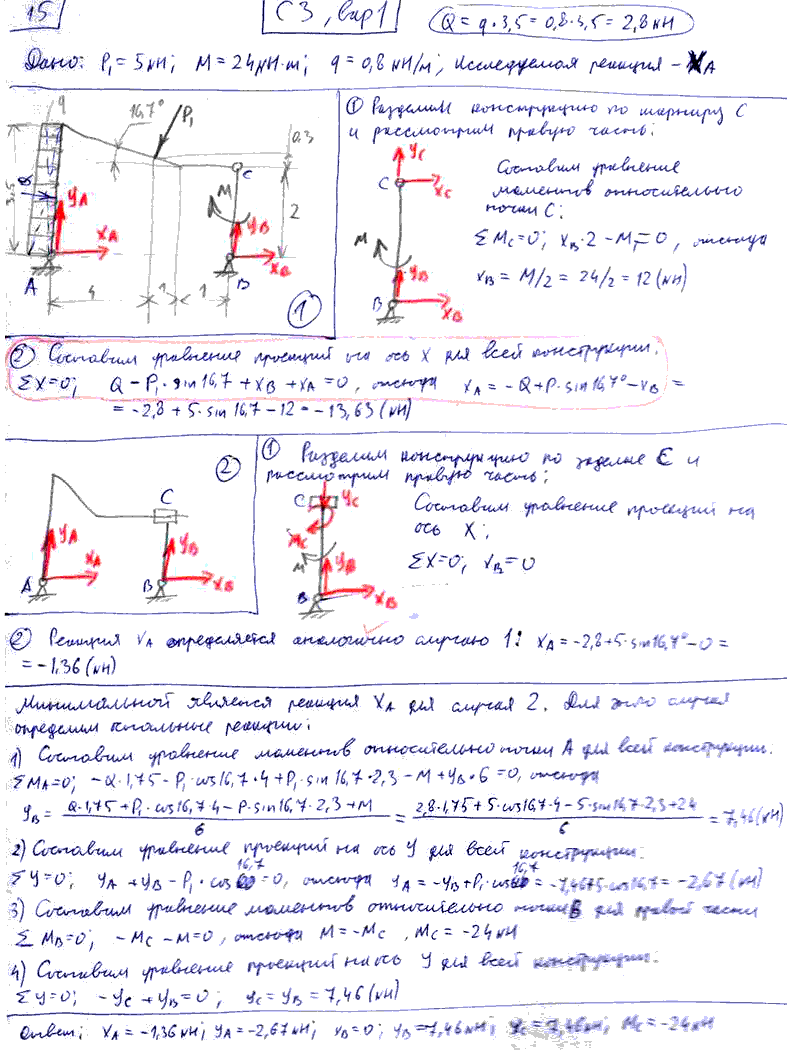 15
С3, вар1
Q = q·3,5 = 0,8·3,5 = 2,8 кН
Дано: P₁ = 5 кН; M = 24 кН·м; q = 0,8 кН/м, Исследуемая реакция - XA
q
16,7°
P₁
0,3
3,5
Q
YA
XA
M
C
YB
XB
2
A
B
4
1
1
1
① Разделим конструкцию по шарниру C
и рассмотрим правую часть:
YC
C
XC
M
YB
B
XB
Составим уравнение
моментов относительно
точки C:
ΣMC=0; XB·2 - M = 0, отсюда
XB = M/2 = 24/2 = 12 (кН)
② Составим уравнение проекций на ось X для всей конструкции.
ΣX=0; Q - P₁·sin16,7 + XB + XA = 0, отсюда XA = -Q + P·sin16,7° - XB =
= -2,8 + 5·sin16,7 - 12 = -13,63 (кН)
②
C
YA
XA
A
YB
B
XB
① Разделим конструкцию по заделке C и
рассмотрим правую часть:
C
YC
MC
M
YB
B
XB
Составим уравнение проекций на
ось X:
ΣX=0; XB=0
② Реакция XA определяется аналогично случаю 1: XA = -2,8+5·sin16,7° - 0 =
= -1,36 (кН)
Минимальной является реакция XA для случая 2. Для этого случая
определим остальные реакции:
1) Составим уравнение моментов относительно точки A для всей конструкции.
ΣMA=0; -Q·1,75 - P₁·cos16,7·4 + P₁·sin16,7·2,3 - M + YB·6 = 0, отсюда
YB = (Q·1,75 + P₁·cos16,7·4 - P·sin16,7·2,3 + M)/6 = (2,8·1,75 + 5·cos16,7·4 - 5·sin16,7·2,3 + 24)/6 = 7,46 (кН)
2) Составим уравнение проекций на ось Y для всей конструкции:
ΣY=0; YA + YB - P₁·cos16,7 = 0, отсюда YA = -YB + P₁·cos16,7 = -7,46+5·cos16,7 = -2,67 (кН)
3) Составим уравнение моментов относительно точки B для правой части
ΣMB=0; -MC - M = 0, отсюда M = -MC, MC = -24 кН
4) Составим уравнение проекций на ось Y для всей конструкции:
ΣY=0; -YC + YB = 0; YC = YB = 7,46 (кН)
Ответ: XA = -1,36 кН; YA = -2,67 кН; XB = 0; YB = 7,46 кН; YC = 7,46 кН; MC = -24 кН